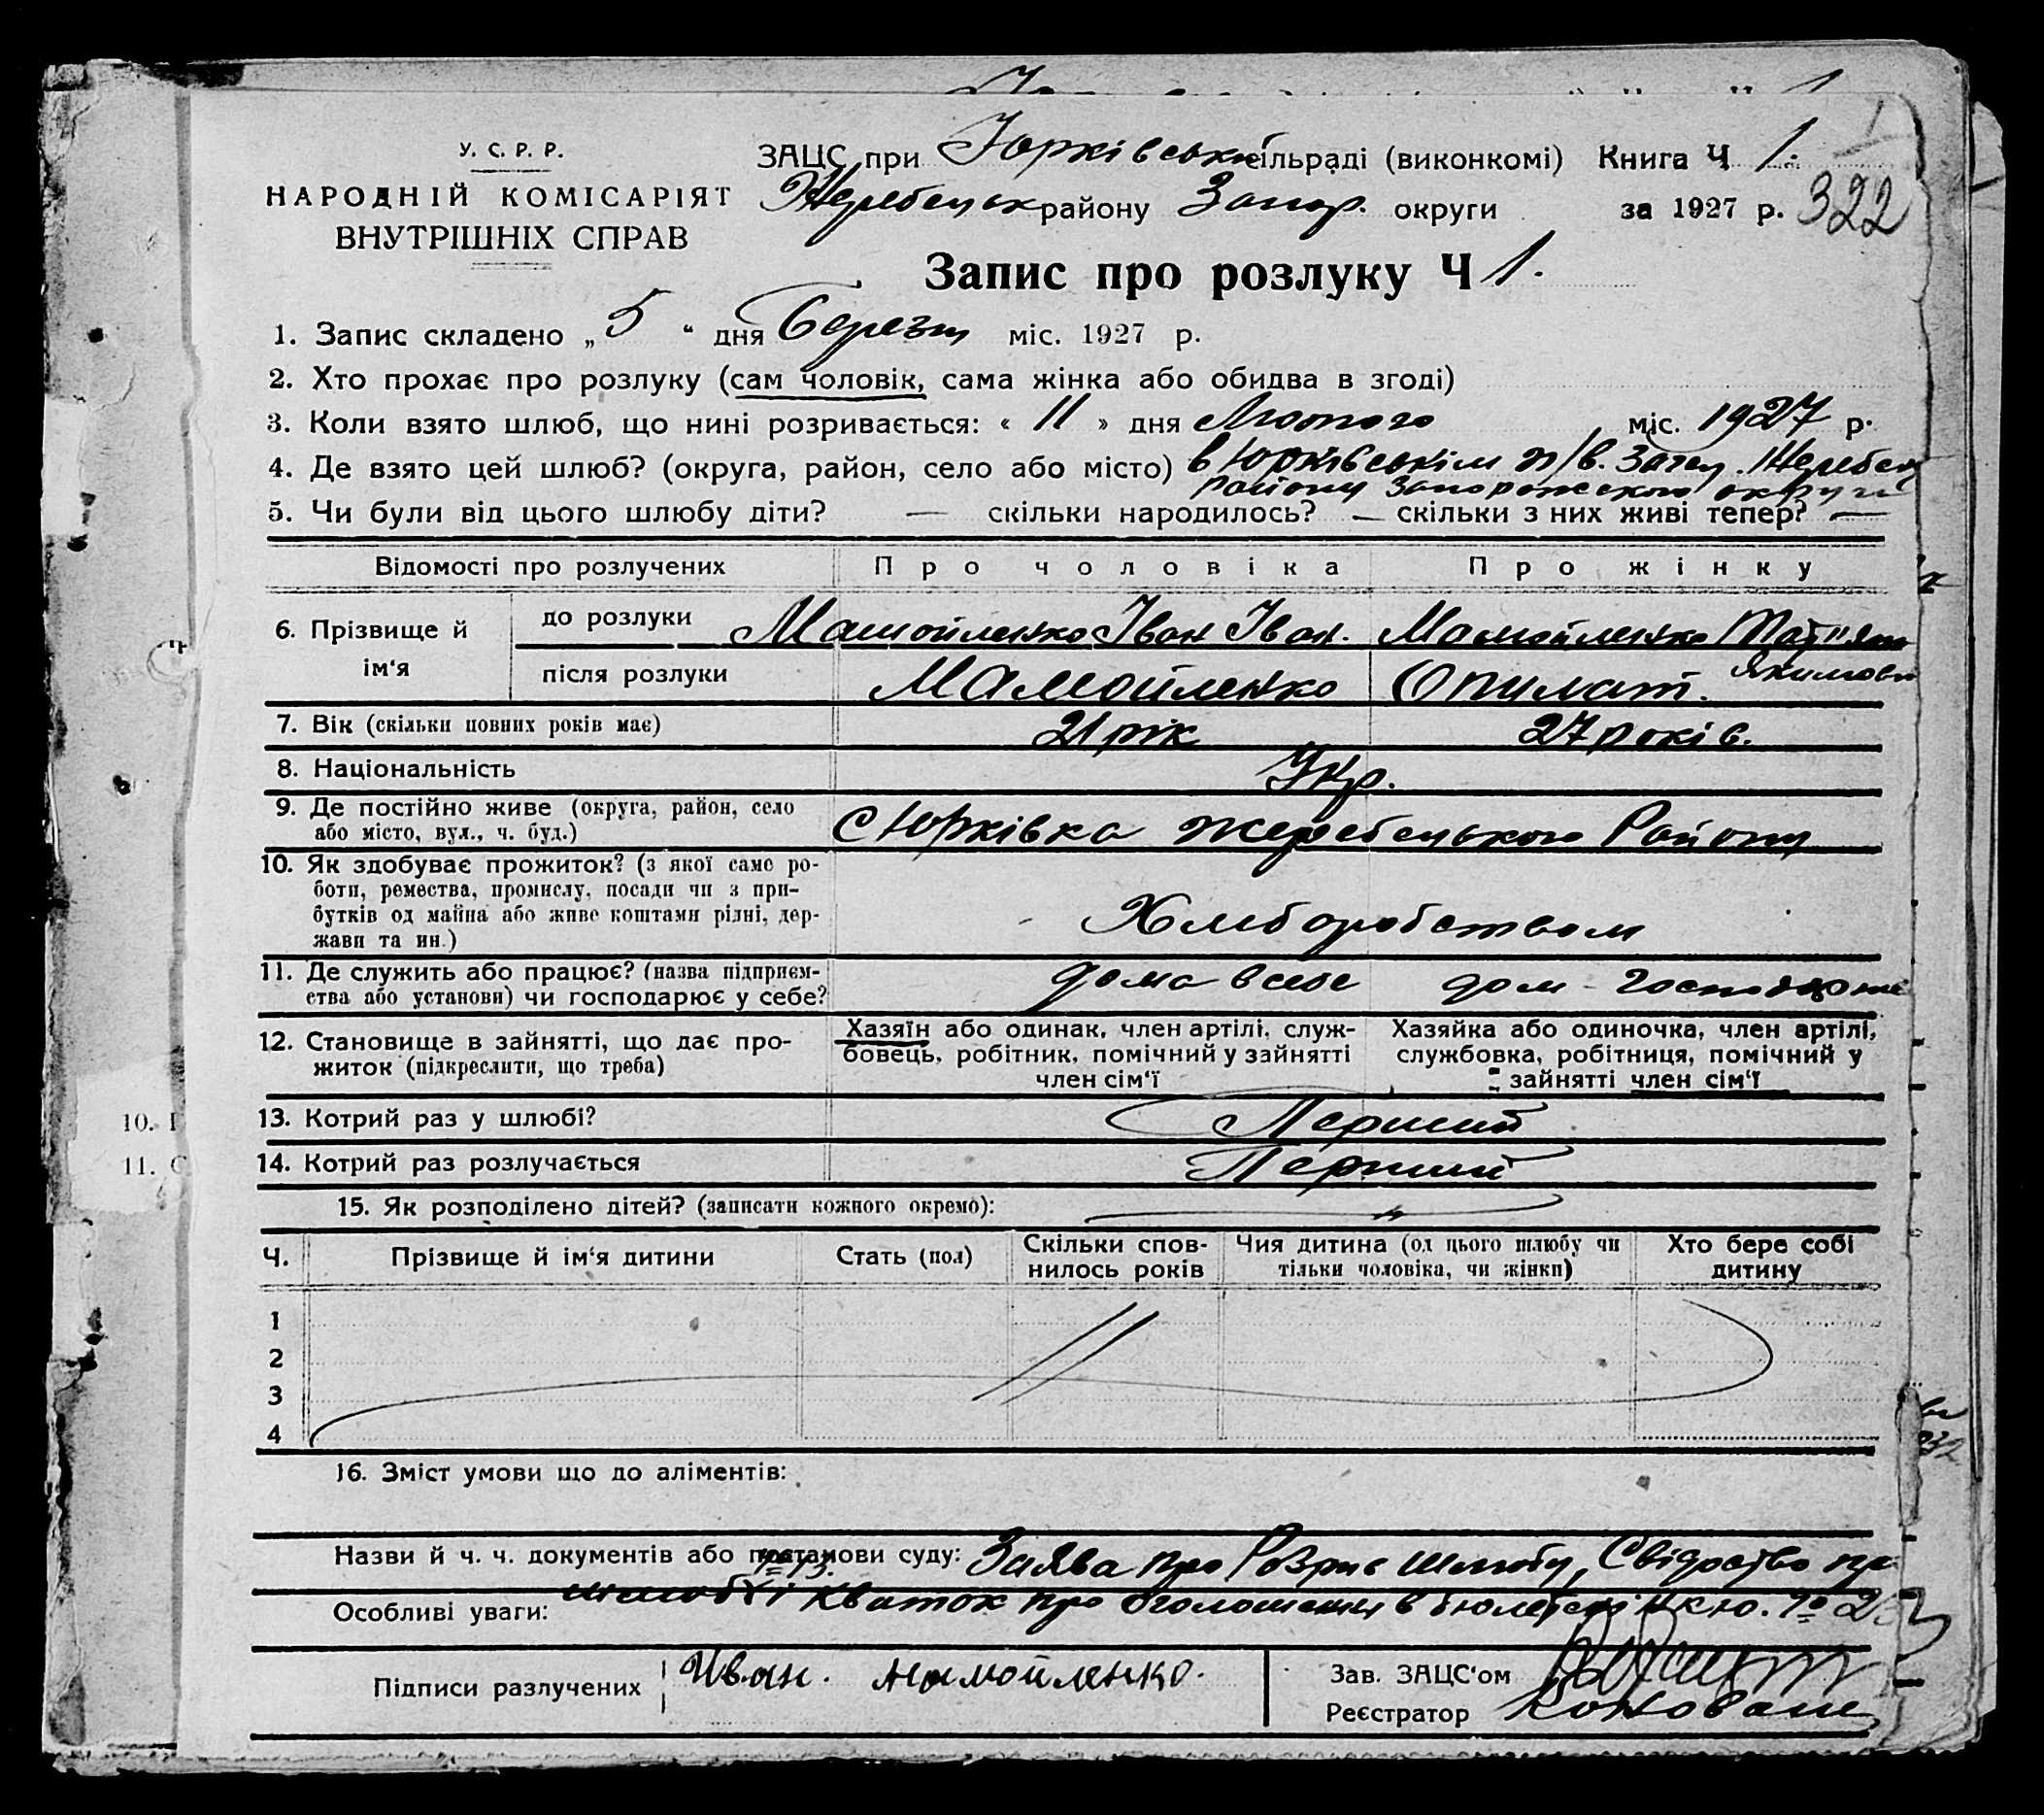 У. С. Р. Р.
НАРОДНІЙ КОМІСАРІЯТ
ВНУТРІШНІХ СПРАВ
ЗАЦС при Юрківській сільраді (виконкомі) Книга Ч 1.
Жеребецьк району Запор. округи за 1927 р. 322
Запис про розлуку Ч 1.
1. Запис складено „ 5 “ дня Березня міс. 1927 р.
2. Хто прохає про розлуку (сам чоловік, сама жінка або обидва в згоді)
3. Коли взято шлюб, що нині розривається: « 11 » дня Лютого міс. 1927 р.
4. Де взято цей шлюб? (округа, район, село або місто) в Юрківськім п/в. Загсу. Жеребец
району Запорожського округи
5. Чи були від цього шлюбу діти? — скільки народилось? — скільки з них живі тепер? —
Відомості про розлучених Про чоловіка Про жінку
6. Прізвище й ім‘я
до розлуки Мамойленко Іван Іван. Мамойленко Тат'яна
Якимовн
після розлуки Мамойленко Опилат.
7. Вік (скільки повних років має) 21 рік 27 років.
8. Національність Укр.
9. Де постійно живе (округа, район, село
або місто, вул., ч. буд.) с Юрківка Жеребецького Району
10. Як здобуває прожиток? (з якої саме ро-
боти, ремества, промислу, посади чи з при-
бутків од майна або живе коштами рідні, дер-
жави та ин.) Хліборобством
11. Де служить або працює? (назва підприєм-
ства або установи) чи господарює у себе? дома в себе дом-господарює
12. Становище в зайнятті, що дає про-
житок (підкреслити, що треба)
Хазяїн або одинак, член артілі, служ-
бовець, робітник, помічний у зайнятті
член сім‘ї
Хазяйка або одиночка, член артілі,
службовка, робітниця, помічний у
зайнятті член сім‘ї
13. Котрий раз у шлюбі? Перший
14. Котрий раз розлучається Перший
15. Як розподілено дітей? (записати кожного окремо): —
Ч. Прізвище й ім‘я дитини Стать (пол) Скільки спов-
нилось років Чия дитина (од цього шлюбу чи
тільки чоловіка, чи жінки) Хто бере собі
дитину
1
2
3
4
16. Зміст умови що до аліментів:
Назви й ч. ч. документів або постанови суду: Заява про Розрив шлюбу, Свідоство про
шлюб № 13. і квиток про оголошення в бюлетені НКЮ. №
Особливі уваги:
Підписи разлучених Иван. Мамойленко.
Зав. ЗАЦС‘ом
Реєстратор Коновали
10.
11.